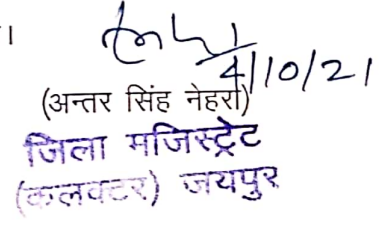 ।
4/10/21
(अन्तर सिंह नेहरा)
जिला मजिस्ट्रेट
(कलक्टर) जयपुर